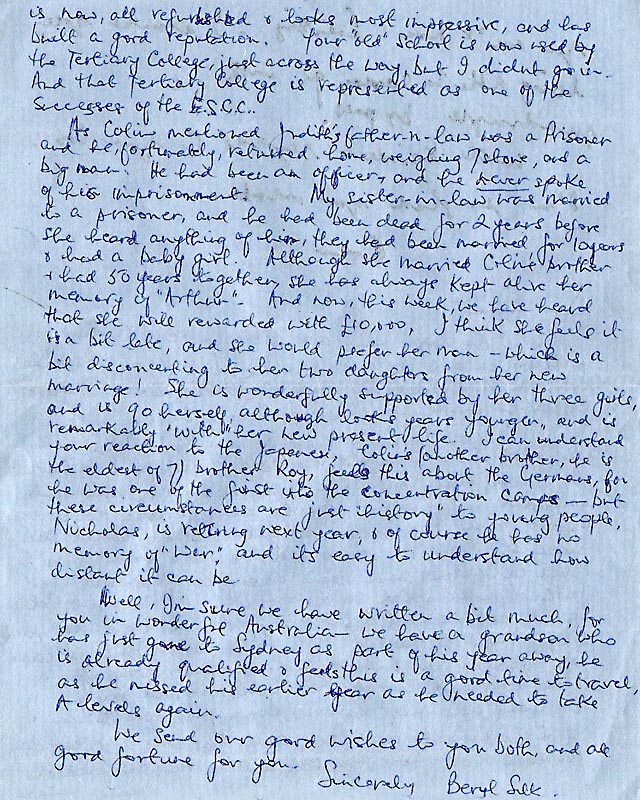 is now, all refurbished & looks most impressive, and has
built a good reputation. Your "old" School is now used by
the Tertiary College, just across the way, but I didnt go in.
And that Tertiary College is represented as one of the
Successes of the E.S.C.C..
As Colin mentioned Judith's father-n-law was a Prisoner
and he, fortunately, returned home, weighing 7 stone, and a
big man. He had been an officer, and he never spoke
of his imprisonment. My sister-in-law was married
to a prisoner, and he had been dead for 2 years before
she heard anything of him, they had been married for 10 years
& had a baby girl. Although she married Colin's brother
& had 50 years together, she has always kept alive her
memory of "Arthur". And now, this week, we have heard
that she will rewarded with £10,000, I think she feels it
is a bit late, and she would prefer her man - which is a
bit disconcerting to her two daughters from her new
marriage! She is wonderfully supported by her three girls,
and is 90 herself, although looks years younger, and is
remarkably "with" her new present life. I can understand
your reaction to the Japanese, Colin's (another brother, he is
the eldest of 7) brother Roy, feels this about the Germans, for
he was one of the first into the concentration camps — but
these circumstances are just "history" to young people,
Nicholas, is retiring next year, & of course he has no
memory of "War", and its easy to understand how
distant it can be.
Well, I'm sure, we have written a bit much, for
you in wonderful Australia - we have a grandson who
has just gone to Sydney as part of his year away, he
is already qualified & feels this is a good time to travel,
as he missed his earlier year as he needed to take
A levels again.
We send our good wishes to you both, and all
good fortune for you.
Sincerely Beryl Silk.